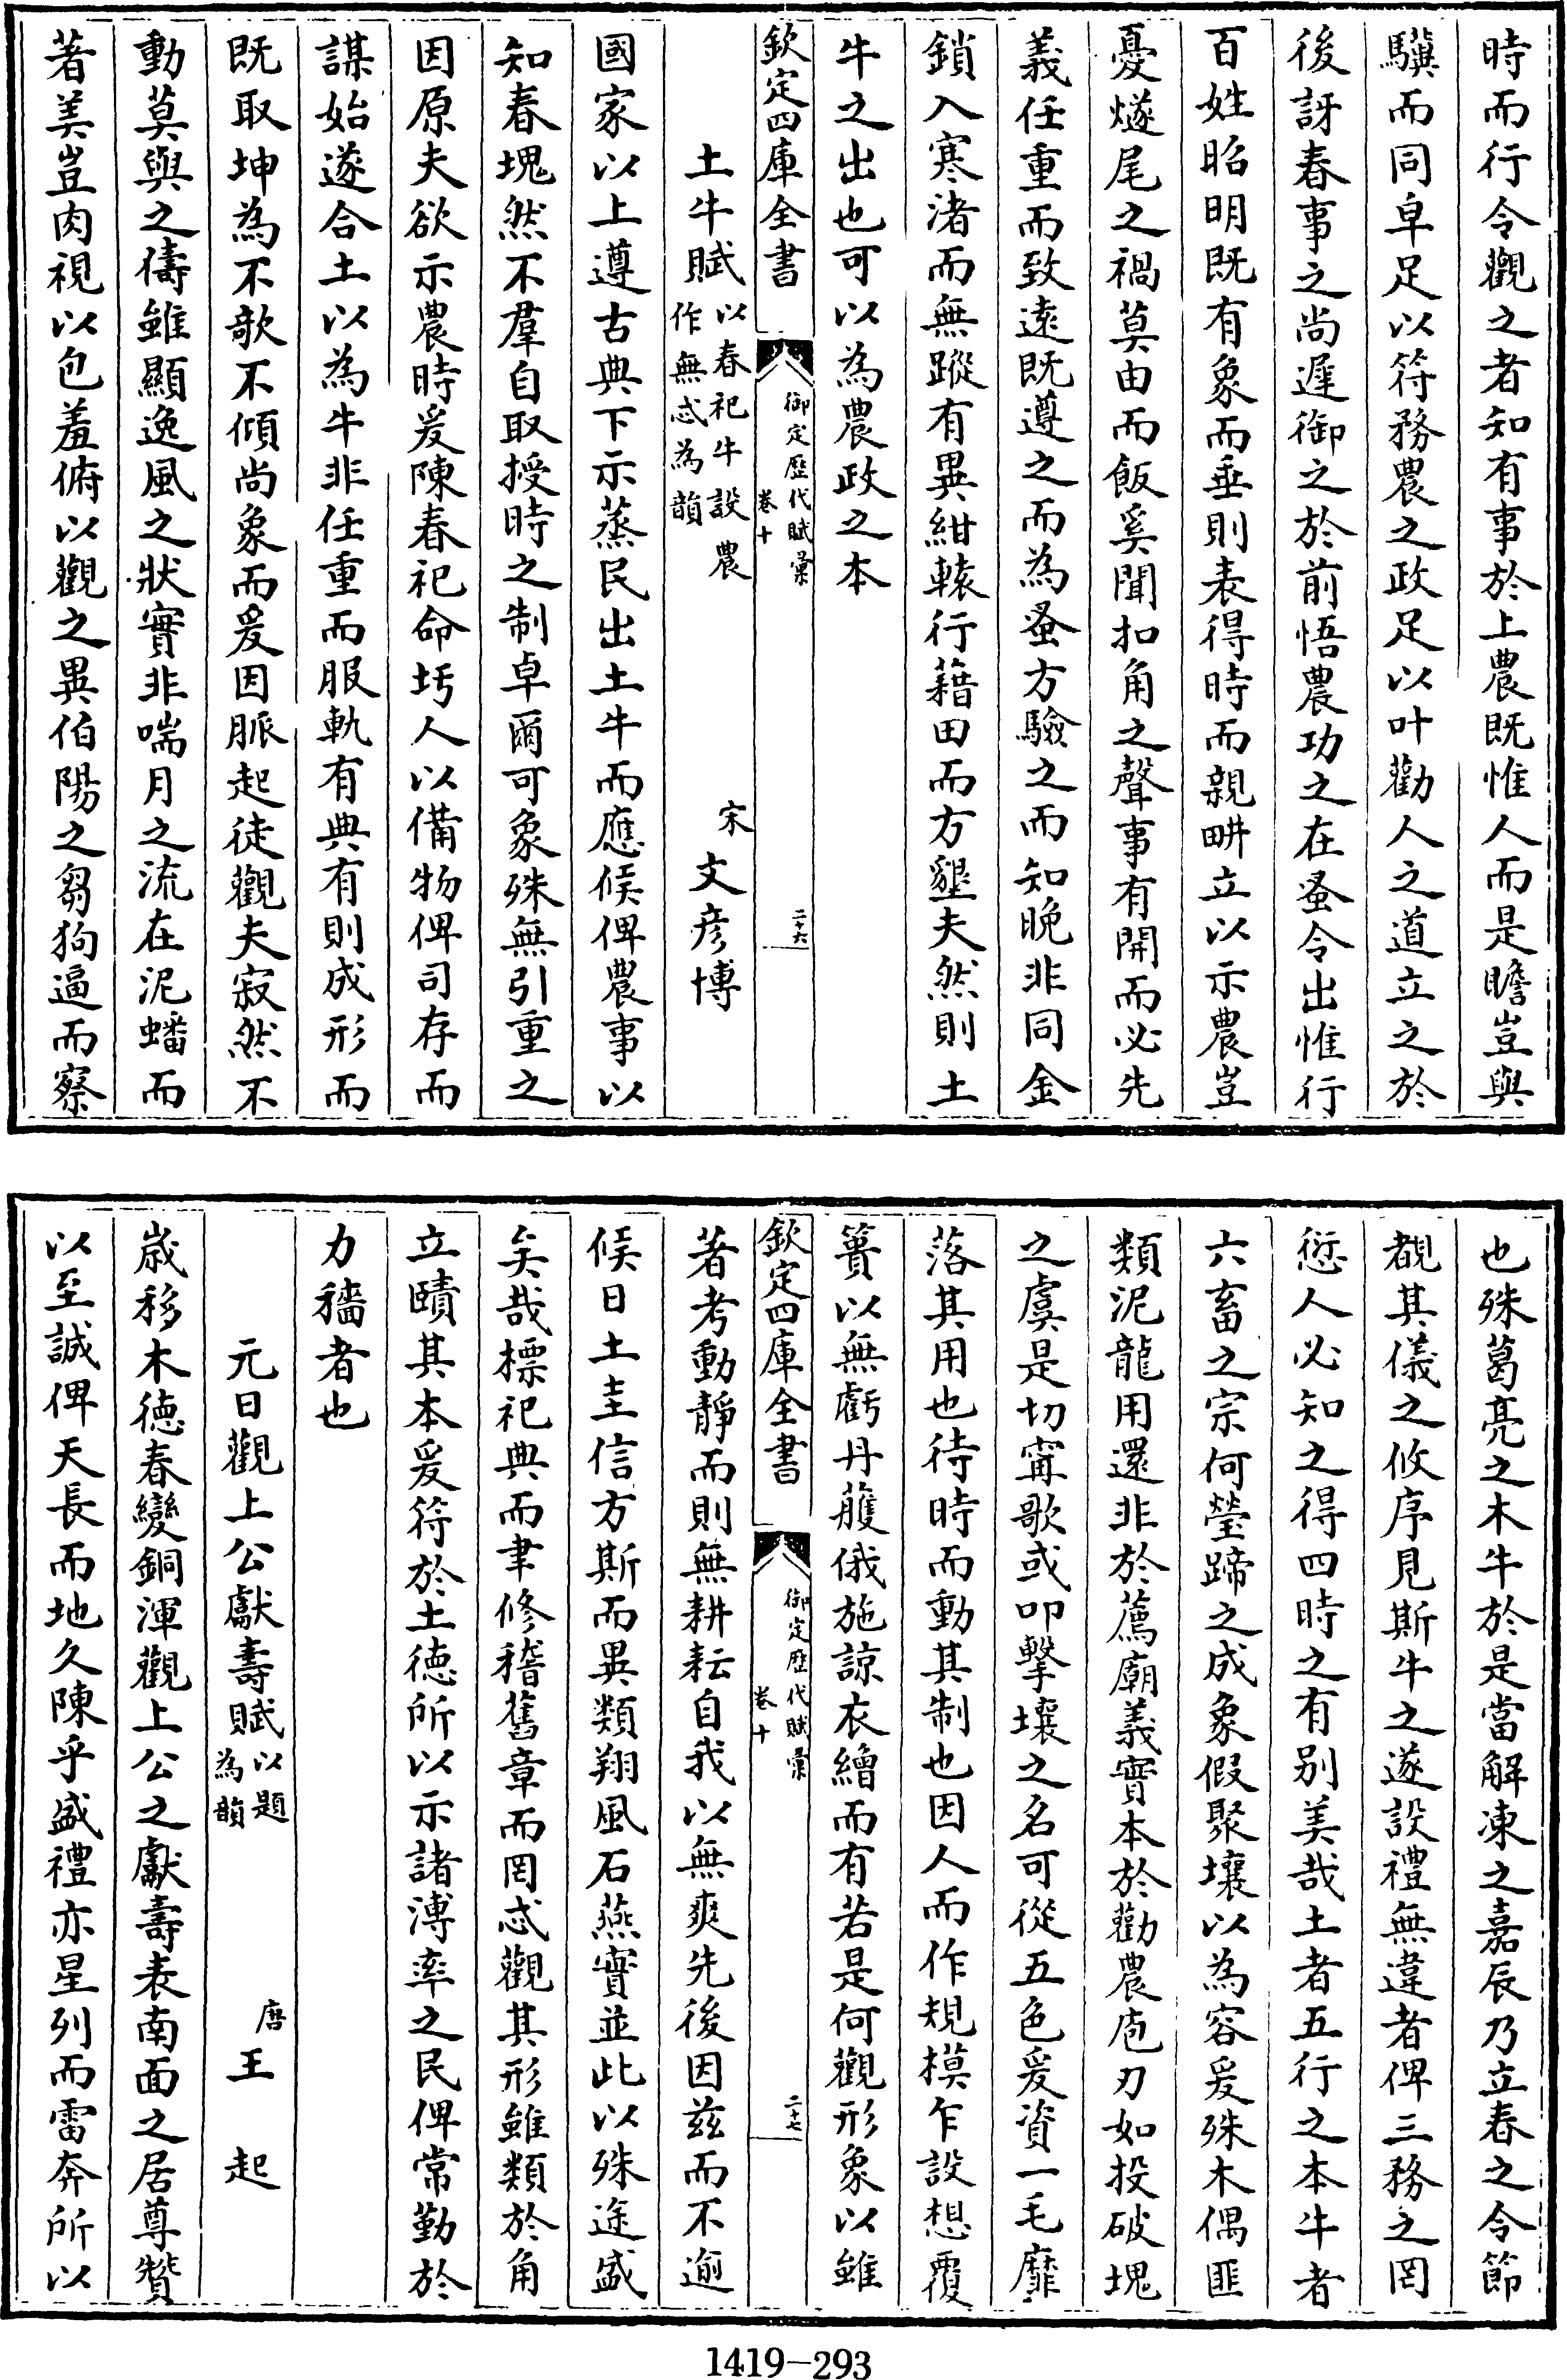 時而行令觀之者知有事於上農既惟人而是瞻豈與
驥而同皁足以符務農之政足以叶勸人之道立之於
後訝春事之尚遲御之於前悟農功之在蚤令出惟行
百姓昭明既有象而垂則表得時而親畊立以示農豈
憂燧尾之禍莫由而飯奚聞扣角之聲事有開而必先
義任重而致遠既遵之而為蚤方驗之而知晚非同金
鎖入寒渚而無蹤有異紺轅行藉田而方墾夫然則土
牛之出也可以為農政之本
欽定四庫全書
御定歷代賦彙
卷十
二十六
土牛賦以春祀牛設農
作無忒為韻
宋 文彥博
國家以上遵古典下示蒸民出土牛而應候俾農事以
知春塊然不羣自取授時之制卓爾可象殊無引重之
因原夫欲示農時爰陳春祀命圬人以備物俾司存而
謀始遂合土以為牛非任重而服軌有典有則成形而
既取坤為不歕不傾尚象而爰因脈起徒觀夫寂然不
動莫與之儔雖顯逸風之狀實非喘月之流在泥蟠而
著美豈肉視以包羞俯以觀之異伯陽之芻狗逼而察
也殊葛亮之木牛於是當解凍之嘉辰乃立春之令節
覩其儀之攸序見斯牛之遂設禮無違者俾三務之罔
愆人必知之得四時之有别美哉土者五行之本牛者
六畜之宗何瑩蹄之成象假聚壤以為容爰殊木偶匪
類泥龍用還非於薦廟義實本於勸農庖刃如投破塊
之虞是切甯歌或叩擊壤之名可從五色爰資一毛靡
落其用也待時而動其制也因人而作規模乍設想覆
簣以無虧丹雘俄施諒衣繪而有若是何觀形象以雖
欽定四庫全書
御定歷代賦彙
卷十
二十七
著考動靜而則無耕耘自我以無爽先後因茲而不逾
候日土圭信方斯而異類翔風石燕實並此以殊途盛
矣哉標祀典而聿修稽舊章而罔忒觀其形雖類於角
立賾其本爰符於土德所以示諸溥率之民俾常勤於
力穡者也
元日觀上公獻壽賦以題
為韻
唐 王 起
歲移木德春變銅渾觀上公之獻壽表南面之居尊贊
以至誠俾天長而地久陳乎盛禮亦星列而雷奔所以
1419—293